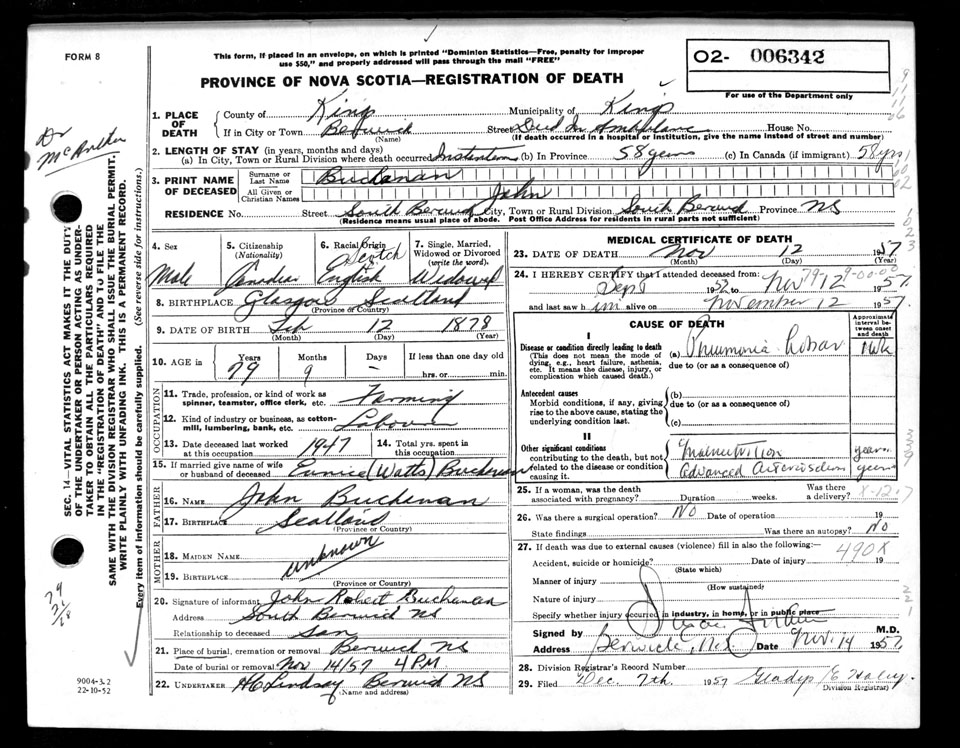 FORM 8
This form, if placed in an envelope, on which is printed "Dominion Statistics—Free, penalty for improper
use $50," and properly addressed will pass through the mail "FREE"
PROVINCE OF NOVA SCOTIA—REGISTRATION OF DEATH
O2- 006342
For use of the Department only
Dr
1. PLACE OF DEATH
County of King
Municipality of Kings
If in City or Town Berwick (Name) Street Died In Ambulance House No.
(If death occurred in a hospital or institution, give the name instead of street and number)
2. LENGTH OF STAY (in years, months and days)
(a) In City, Town or Rural Division where death occurred (b) In Province 58 years (c) In Canada (if immigrant) 58 yrs
3. PRINT NAME OF DECEASED
Surname or Last Name Buchanan
All Given or Christian Names John
RESIDENCE No. Street South Berwick City, Town or Rural Division South Berwick Province NS
(Residence means usual place of abode. Post Office Address for residents in rural parts not sufficient)
4. Sex Male
5. Citizenship (Nationality) Canadian
6. Racial Origin Scotch English
7. Single, Married, Widowed or Divorced (write the word). Widowed
8. BIRTHPLACE Glasgow Scotland
(Province or Country)
9. DATE OF BIRTH Feb 12 1878
(Month) (Day) (Year)
10. AGE in Years 79 Months 9 Days – If less than one day old hrs. or min.
OCCUPATION
11. Trade, profession, or kind of work as spinner, teamster, office clerk, etc. Farming
12. Kind of industry or business, as cotton-mill, lumbering, bank, etc. Labourer
13. Date deceased last worked at this occupation 1947
14. Total yrs. spent in this occupation
15. If married give name of wife or husband of deceased Eunice (Watts) Buchanan
FATHER
16. NAME John Buchanan
17. BIRTHPLACE Scotland
(Province or Country)
MOTHER
18. MAIDEN NAME
unknown
19. BIRTHPLACE
(Province or Country)
20. Signature of informant John Robert Buchanan
Address South Berwick NS
Relationship to deceased Son
21. Place of burial, cremation or removal Berwick NS
Date of burial or removal Nov 14/57 4 PM
22. UNDERTAKER H C Lindsay Berwick NS
(Name and address)
MEDICAL CERTIFICATE OF DEATH
23. DATE OF DEATH Nov 12 1957
(Month) (Day) (Year)
24. I HEREBY CERTIFY that I attended deceased from:
Sept 1952 to Nov 12 1957
and last saw him alive on November 12 1957
CAUSE OF DEATH
Approximate interval between onset and death
I
Disease or condition directly leading to death
(This does not mean the mode of dying, e.g., heart failure, asthenia, etc. It means the disease, injury, or complication which caused death.)
(a) Pneumonia Lobar
due to (or as a consequence of)
Antecedent causes
Morbid conditions, if any, giving rise to the above cause, stating the underlying condition last.
(b)
due to (or as a consequence of)
(c)
II
Other significant conditions
contributing to the death, but not related to the disease or condition causing it.
Malnutrition years
Advanced Arteriosclerosis years
25. If a woman, was the death associated with pregnancy? Duration weeks. Was there a delivery?
26. Was there a surgical operation? No Date of operation 19
State findings Was there an autopsy? No
27. If death was due to external causes (violence) fill in also the following:—
490X
Accident, suicide or homicide? Date of injury 19
(State which)
Manner of injury
(How sustained)
Nature of injury
Specify whether injury occurred in industry, in home, or in public place
Signed by M.D.
Address Berwick, N.S. Date Nov. 14 1957
28. Division Registrar's Record Number
29. Filed Dec. 7th. 1957 Gladys E
Division Registrar)
SEC. 14—VITAL STATISTICS ACT MAKES IT THE DUTY
OF THE UNDERTAKER OR PERSON ACTING AS UNDER-
TAKER TO OBTAIN ALL THE PARTICULARS REQUIRED
IN THE "REGISTRATION OF DEATH" AND TO FILE THE
SAME WITH THE DIVISION REGISTRAR WHO SHALL ISSUE THE BURIAL PERMIT.
WRITE PLAINLY WITH UNFADING INK. THIS IS A PERMANENT RECORD.
Every item of information should be carefully supplied. (See reverse side for instructions.)
9004-3.2
22-10-52